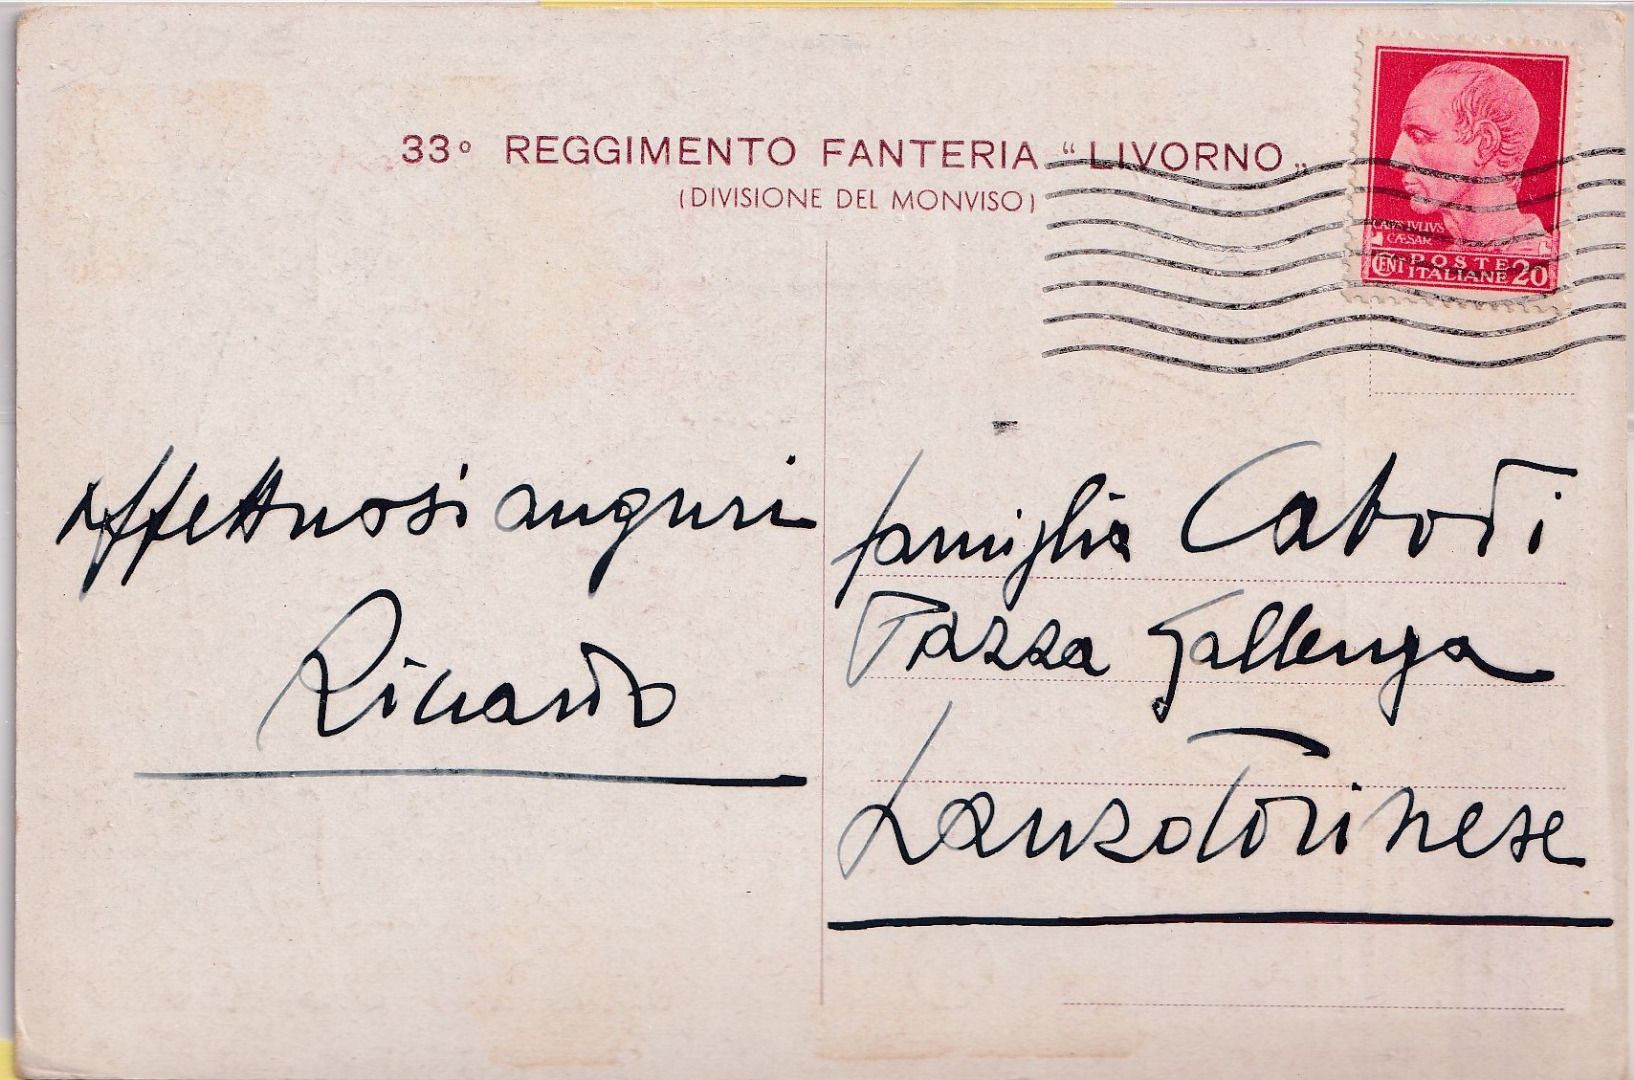 33° REGGIMENTO FANTERIA “ LIVORNO „
(DIVISIONE DEL MONVISO)
CAIVS IVLIVS
CÆSAR
CENT POSTE 20
ITALIANE
Affettuosi auguri
Riccardo
famiglia Cabodi
Piazza Gallenga
Lanzo Torinese